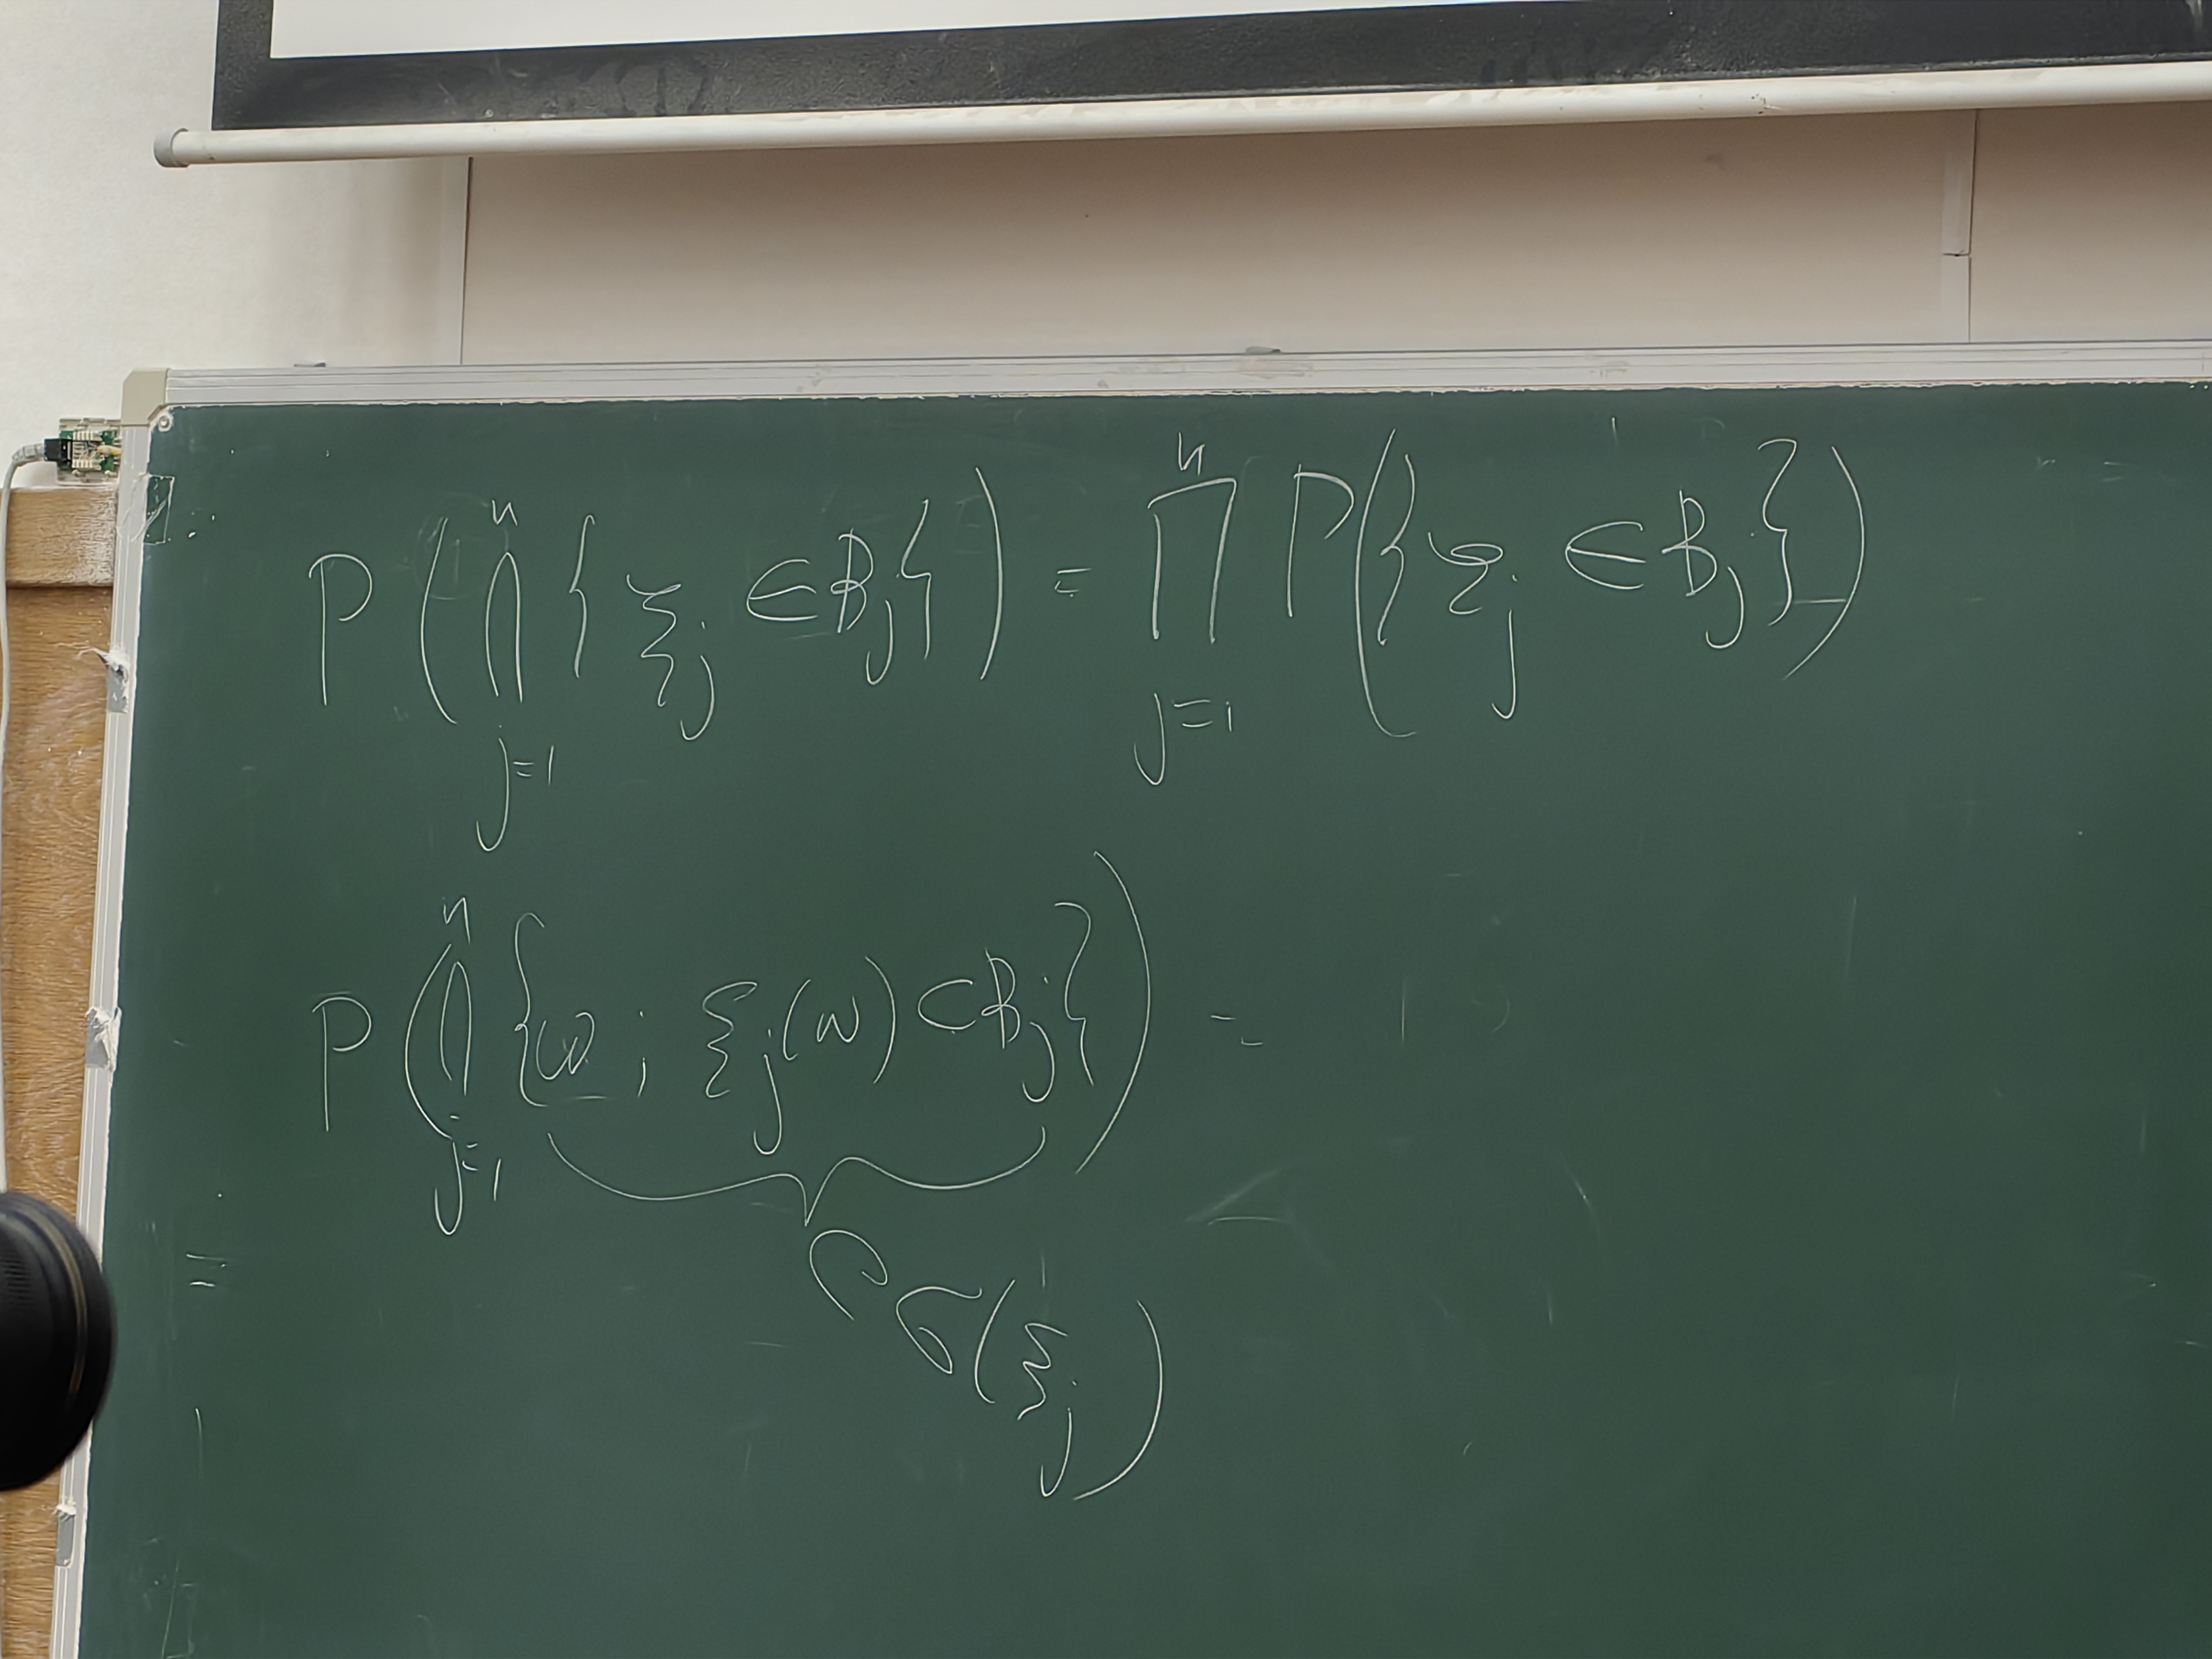 P(⋂_{j=1}^{n} {ξ_j ∈ B_j}) = ∏_{j=1}^{n} P({ξ_j ∈ B_j})
P(⋂_{j=1}^{n} {ω ; ξ_j(ω) ⊂ B_j}) =
σ(ξ_j)
=